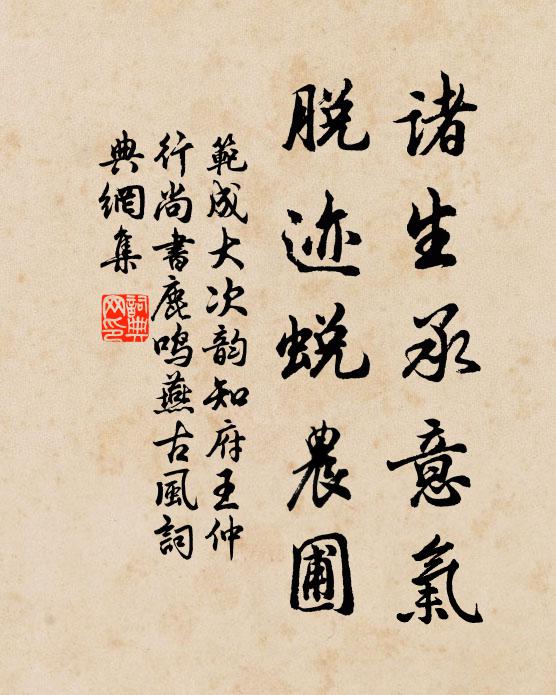 諸生承意氣
脱迹蜕農圃
範成大次韵知府王仲
行尚書鹿鳴燕古風詞
典網集
詞典
网印